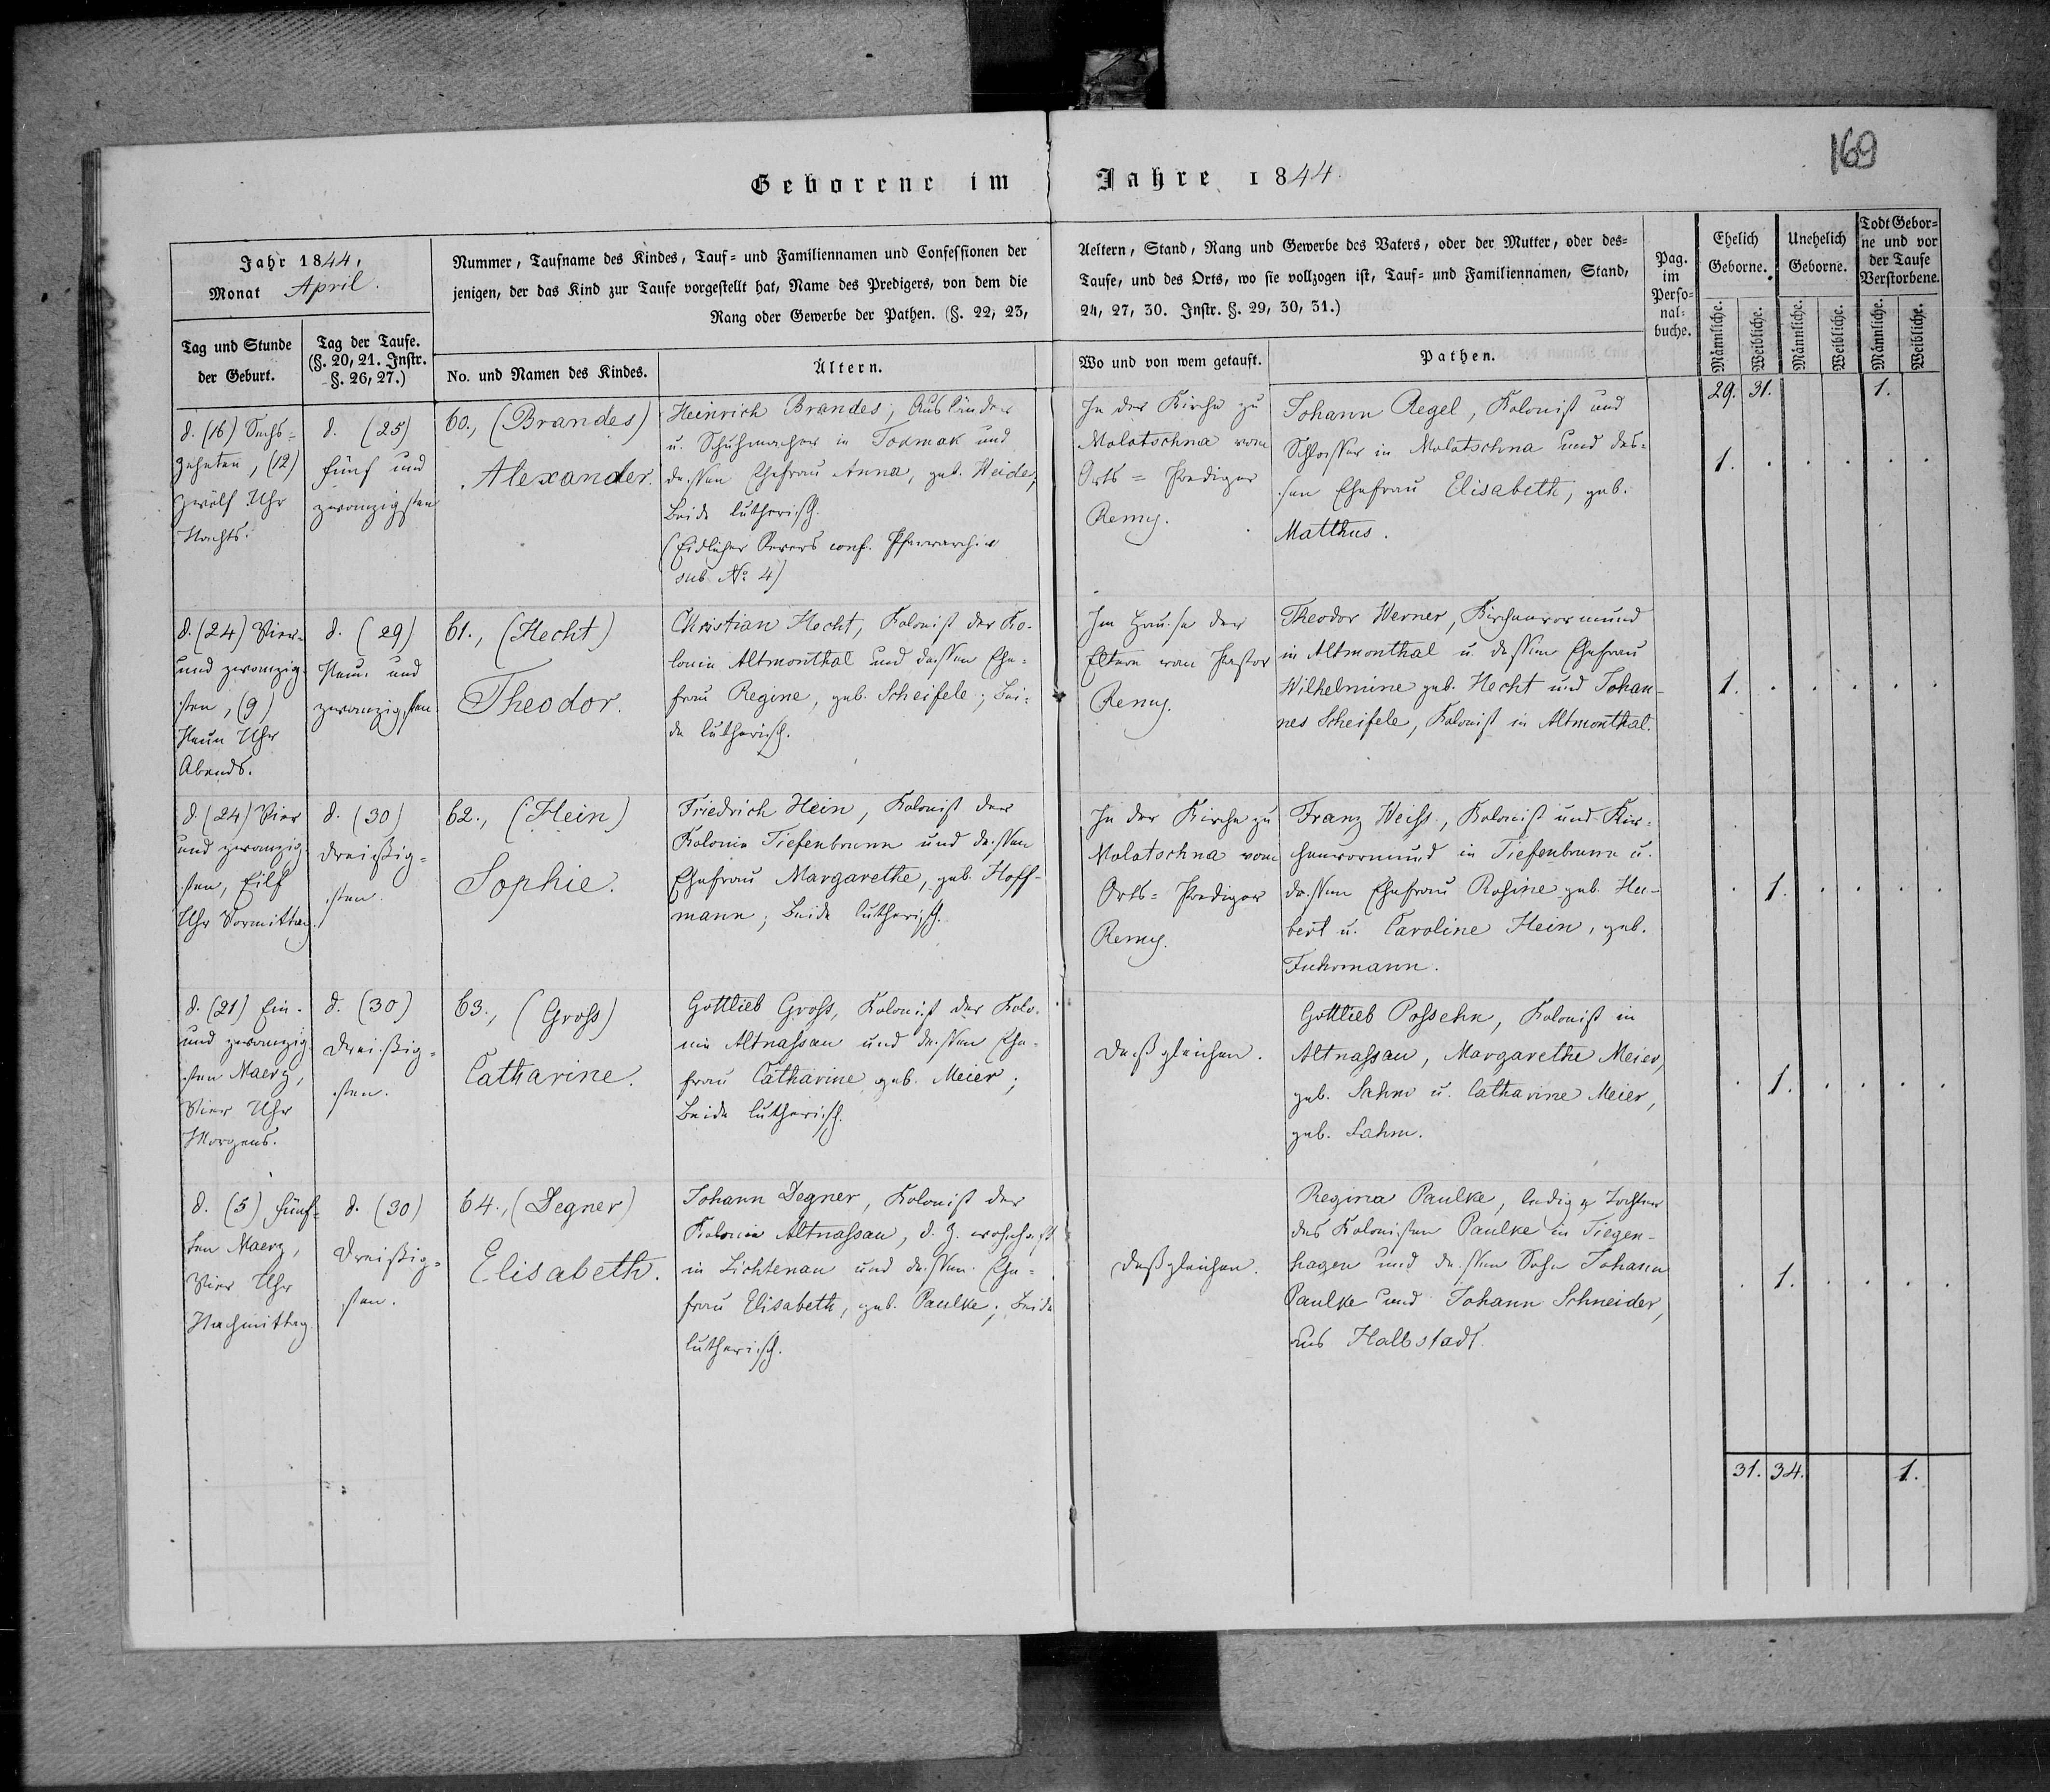 169
Geborene im Jahre 1844.
Jahr 1844.
Monat April.
Nummer, Taufname des Kindes, Tauf= und Familiennamen und Confessionen der
jenigen, der das Kind zur Taufe vorgestellt hat, Name des Predigers, von dem die
Rang oder Gewerbe der Pathen. (§. 22, 23,
Aeltern, Stand, Rang und Gewerbe des Vaters, oder der Mutter, oder des=
Taufe, und des Orts, wo sie vollzogen ist, Tauf= und Familiennamen, Stand,
24, 27, 30. Instr. §. 29, 30, 31.)
Pag.
im
Perso=
nal=
buche.
Ehelich
Geborne.
Unehelich
Geborne.
Todt Gebor=
ne und vor
der Taufe
Verstorbene.
Tag und Stunde
der Geburt.
Tag der Taufe.
(§. 20, 21. Instr.
§. 26, 27.)
No. und Namen des Kindes.
Ältern.
Wo und von wem getauft.
Pathen.
Männliche.
Weibliche.
Männliche.
Weibliche.
Männliche.
Weibliche.
29. 31. 1.
d. (16) Sechs=
zehnten, (12)
zwölf Uhr
Nachts.
d. (25)
fünf und
zwanzigsten
60., (Brandes)
Alexander.
Heinrich Brandes, Ausländer
u. Schuhmacher in Tokmak und
dessen Ehefrau Anna, geb. Weider,
beide lutherisch.
(Eidlicher Revers conf. Pfarrarchiv
sub No 4)
In der Kirche zu
Molotschna vom
Orts=Prediger
Remy.
Johann Regel, Kolonist und
Schlosser in Molotschna und des=
sen Ehefrau Elisabeth, geb.
Matthus.
1. . . . . .
d. (24) Vier=
und zwanzig=
sten, (9)
Neun Uhr
Abends.
d. (29)
Neun und
zwanzigsten
61., (Hecht)
Theodor.
Christian Hecht, Kolonist der Ko=
lonie Altmonthal und dessen Ehe=
frau Regine, geb. Scheifele; bei=
de lutherisch.
Im Hause der
Eltern vom Pastor
Remy.
Theodor Werner, Kirchenvormund
in Altmonthal u. dessen Ehefrau
Wilhelmine geb. Hecht und Johan=
nes Scheifele, Kolonist in Altmonthal.
1. . . . . .
d. (24) Vier
und zwanzig=
sten, Eilf
Uhr Vormittag.
d. (30)
dreißig=
sten.
62., (Hein)
Sophie.
Friedrich Hein, Kolonist der
Kolonie Tiefenbrunn und dessen
Ehefrau Margarethe, geb. Hoff=
mann; beide lutherisch.
In der Kirche zu
Molotschna vom
Orts=Prediger
Remy.
Franz Weiss, Kolonist und Kir=
chenvormund in Tiefenbrunn u.
dessen Ehefrau Rosine geb. Hu=
bert u. Caroline Hein, geb.
Fuhrmann.
. 1. . . . .
d. (21) Ein=
und zwanzig=
sten Maerz,
Vier Uhr
Morgens.
d. (30)
dreißig=
sten.
63., (Gross)
Catharine.
Gottlieb Gross, Kolonist der Kolo=
nie Altnassau und dessen Ehe=
frau Catharine geb. Meier;
beide lutherisch.
deßgleichen.
Gottlieb Possehn, Kolonist in
Altnassau, Margarethe Meier,
geb. Sahm u. Catharine Meier,
geb. Sahm.
. 1. . . . .
d. (5) fünf=
ten Maerz,
Vier Uhr
Nachmittag.
d. (30)
dreißig=
sten.
64., (Degner)
Elisabeth.
Johann Degner, Kolonist der
Kolonie Altnassau, d. Z. wohnhaft
in Lichtenau und dessen Ehe=
frau Elisabeth, geb. Paulke; beide
lutherisch.
deßgleichen.
Regina Paulke, ledige Tochter
des Kolonisten Paulke in Tiegen=
hagen und dessen Sohn Johann
Paulke und Johann Schneider,
aus Halbstadt.
. 1. . . . .
31. 34. 1.